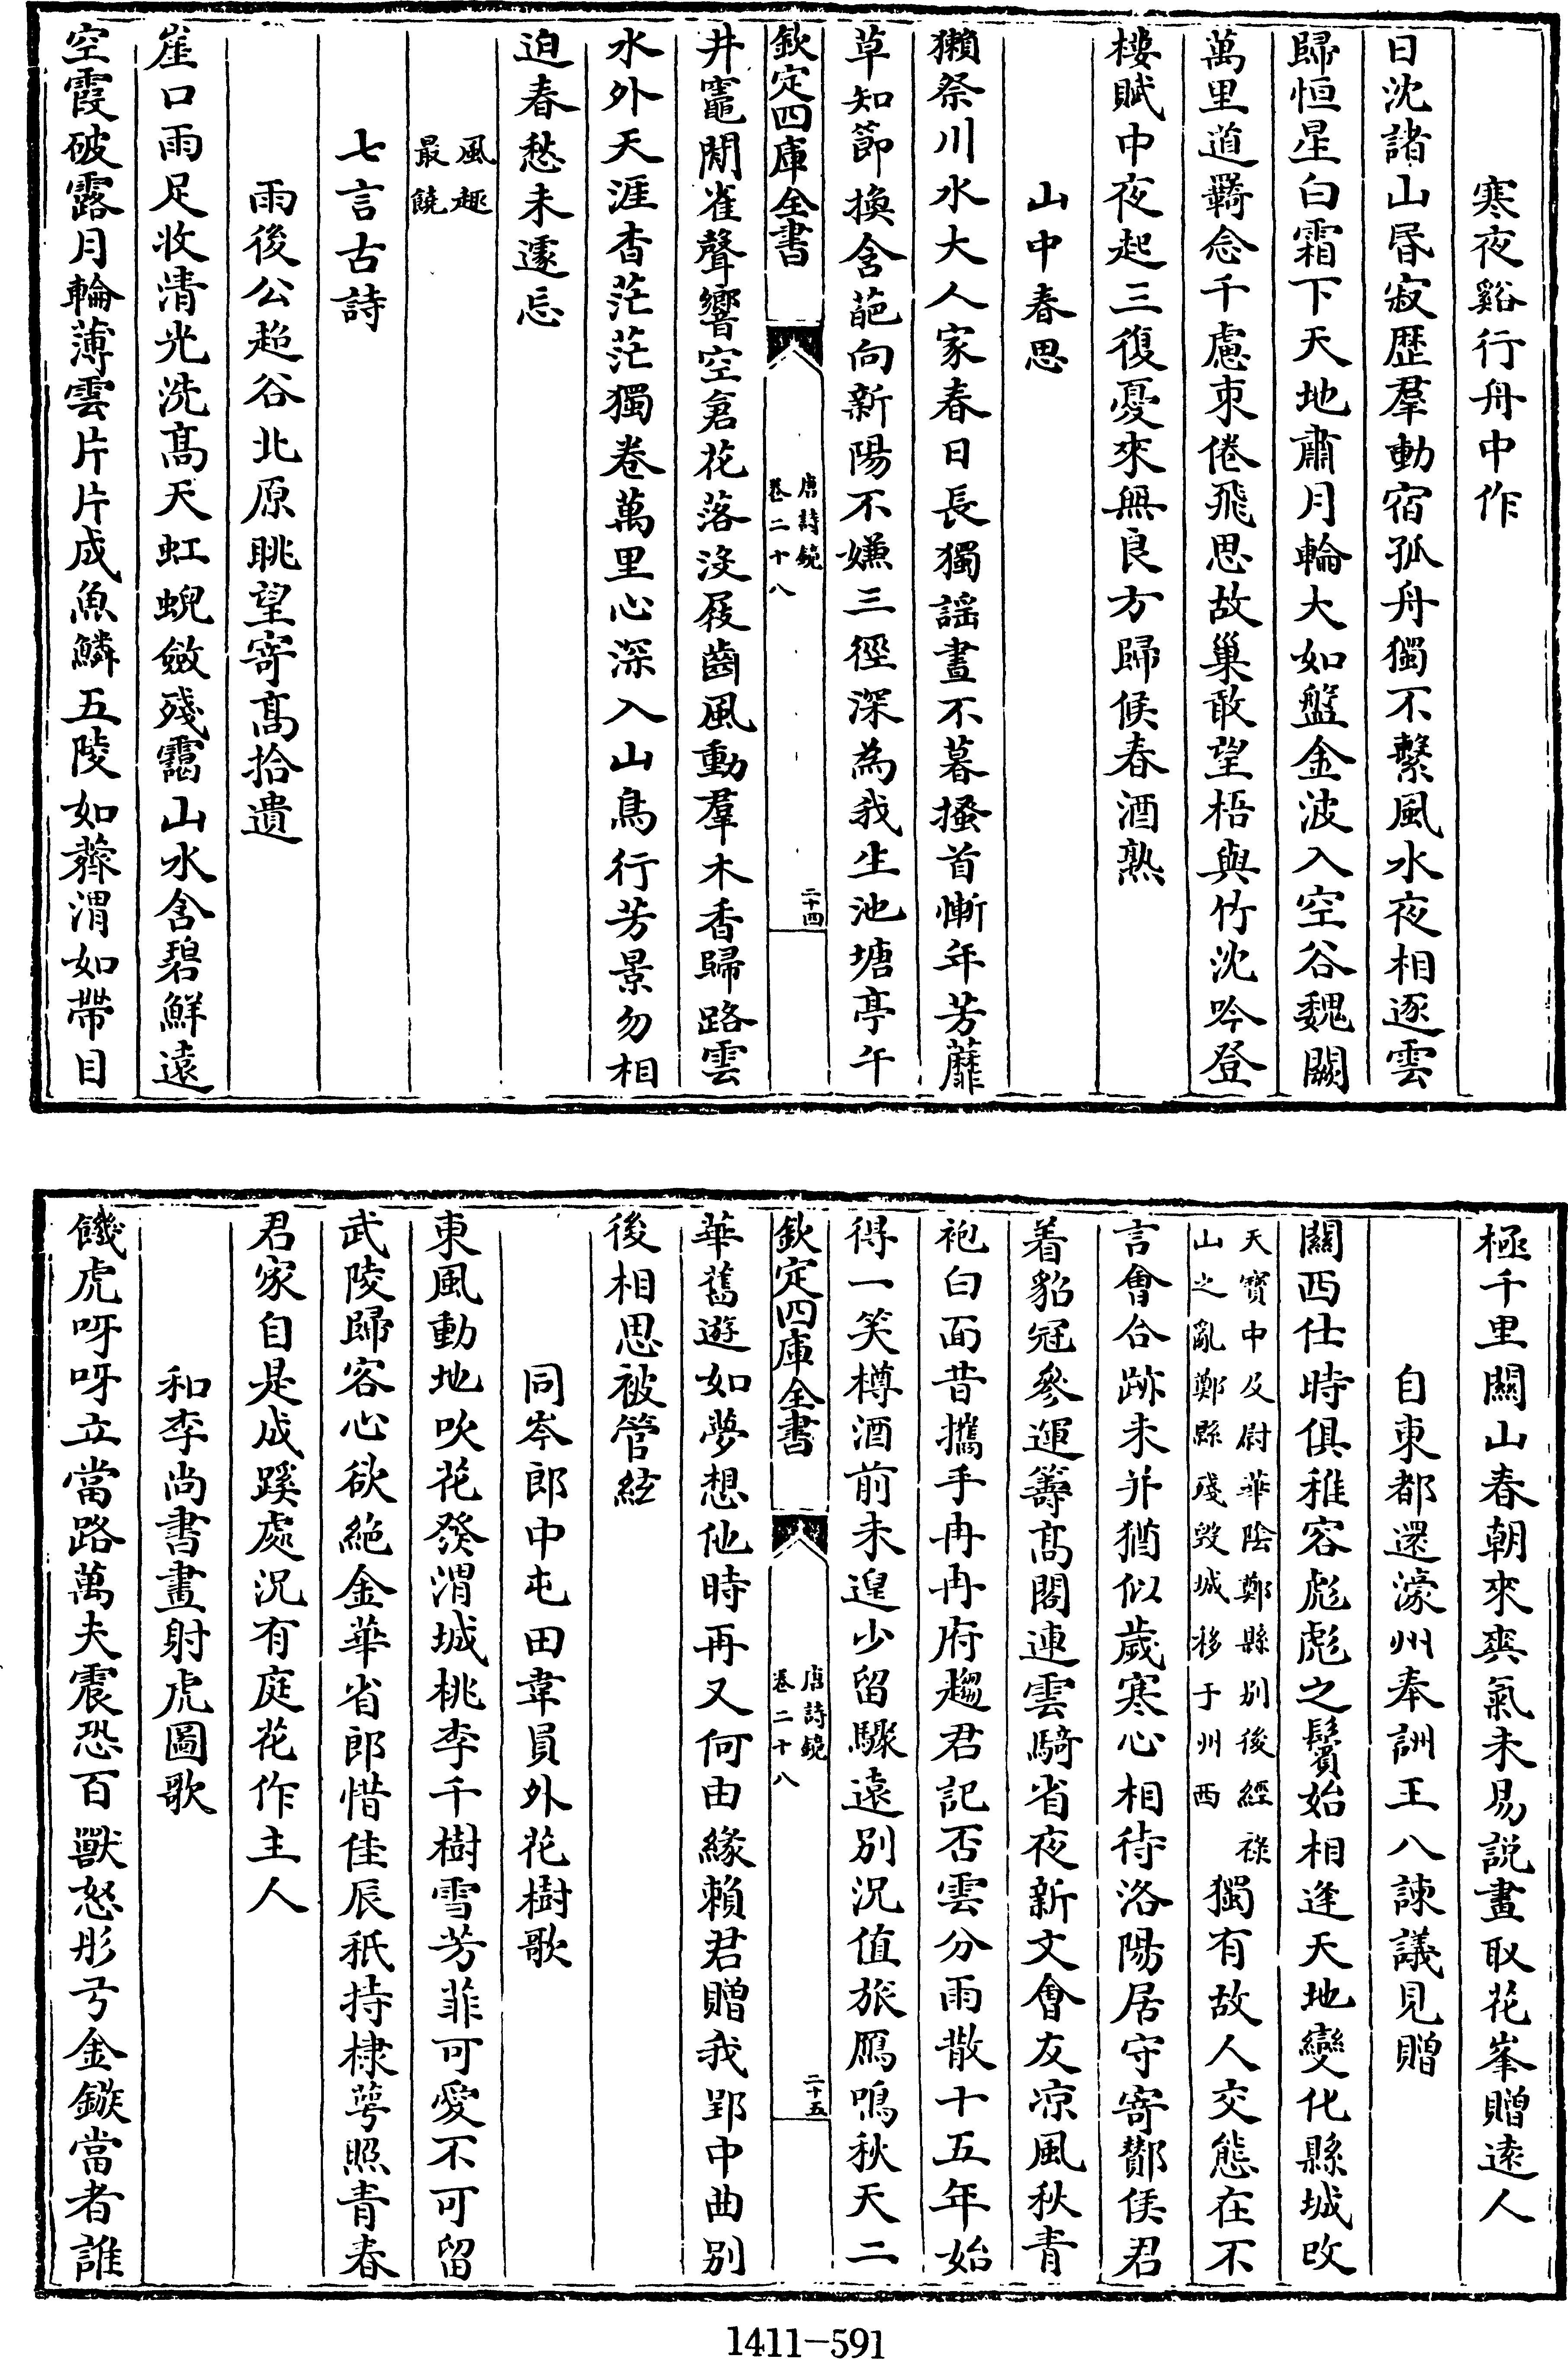 寒夜谿行舟中作
日沈諸山昏寂歴羣動宿孤舟獨不繫風水夜相逐雲
歸恒星白霜下天地肅月輪大如盤金波入空谷魏闕
萬里道羇念千慮束倦飛思故巢敢望梧與竹沈吟登
樓賦中夜起三復憂來無良方歸候春酒熟
山中春思
獺祭川水大人家春日長獨謡晝不暮搔首慚年芳蘼
草知節換含葩向新陽不嫌三徑深為我生池塘亭午
欽定四庫全書
唐詩鏡
卷二十八
二十四
井竈閒雀聲響空倉花落沒屐齒風動羣木香歸路雲
水外天涯杳茫茫獨卷萬里心深入山鳥行芳景勿相
迫春愁未遽忘
風趣
最饒
七言古詩
雨後公超谷北原眺望寄高拾遺
崖口雨足收清光洗高天虹蜺斂殘靄山水含碧鮮遠
空霞破露月輪薄雲片片成魚鱗五陵如薺渭如帶目
極千里關山春朝來爽氣未易説畫取花峯贈逺人
自東都還濠州奉詶王八諫議見贈
關西仕時俱稚容彪彪之鬢始相逢天地變化縣城改
天寶中及尉華隂鄭縣别後經禄
山之亂鄭縣殘毀城移于州西
獨有故人交態在不
言會合跡未并猶似歲寒心相待洛陽居守寄酇侯君
着貂冠參運籌髙閣連雲騎省夜新文會友凉風秋青
袍白面昔攜手冉冉府趨君記否雲分雨散十五年始
得一笑樽酒前未遑少留驟遠别況值旅鴈鳴秋天二
欽定四庫全書
唐詩鏡
卷二十八
二十五
華舊遊如夢想他時再又何由緣賴君贈我郢中曲别
後相思被管絃
同岑郎中屯田韋員外花樹歌
東風動地吹花發渭城桃李千樹雪芳菲可愛不可留
武陵歸客心欲絶金華省郎惜佳辰秪持棣萼照青春
君家自是成蹊處況有庭花作主人
和李尚書畫射虎圖歌
饑虎呀呀立當路萬夫震恐百獸怒彤弓金鏃當者誰
1411-591